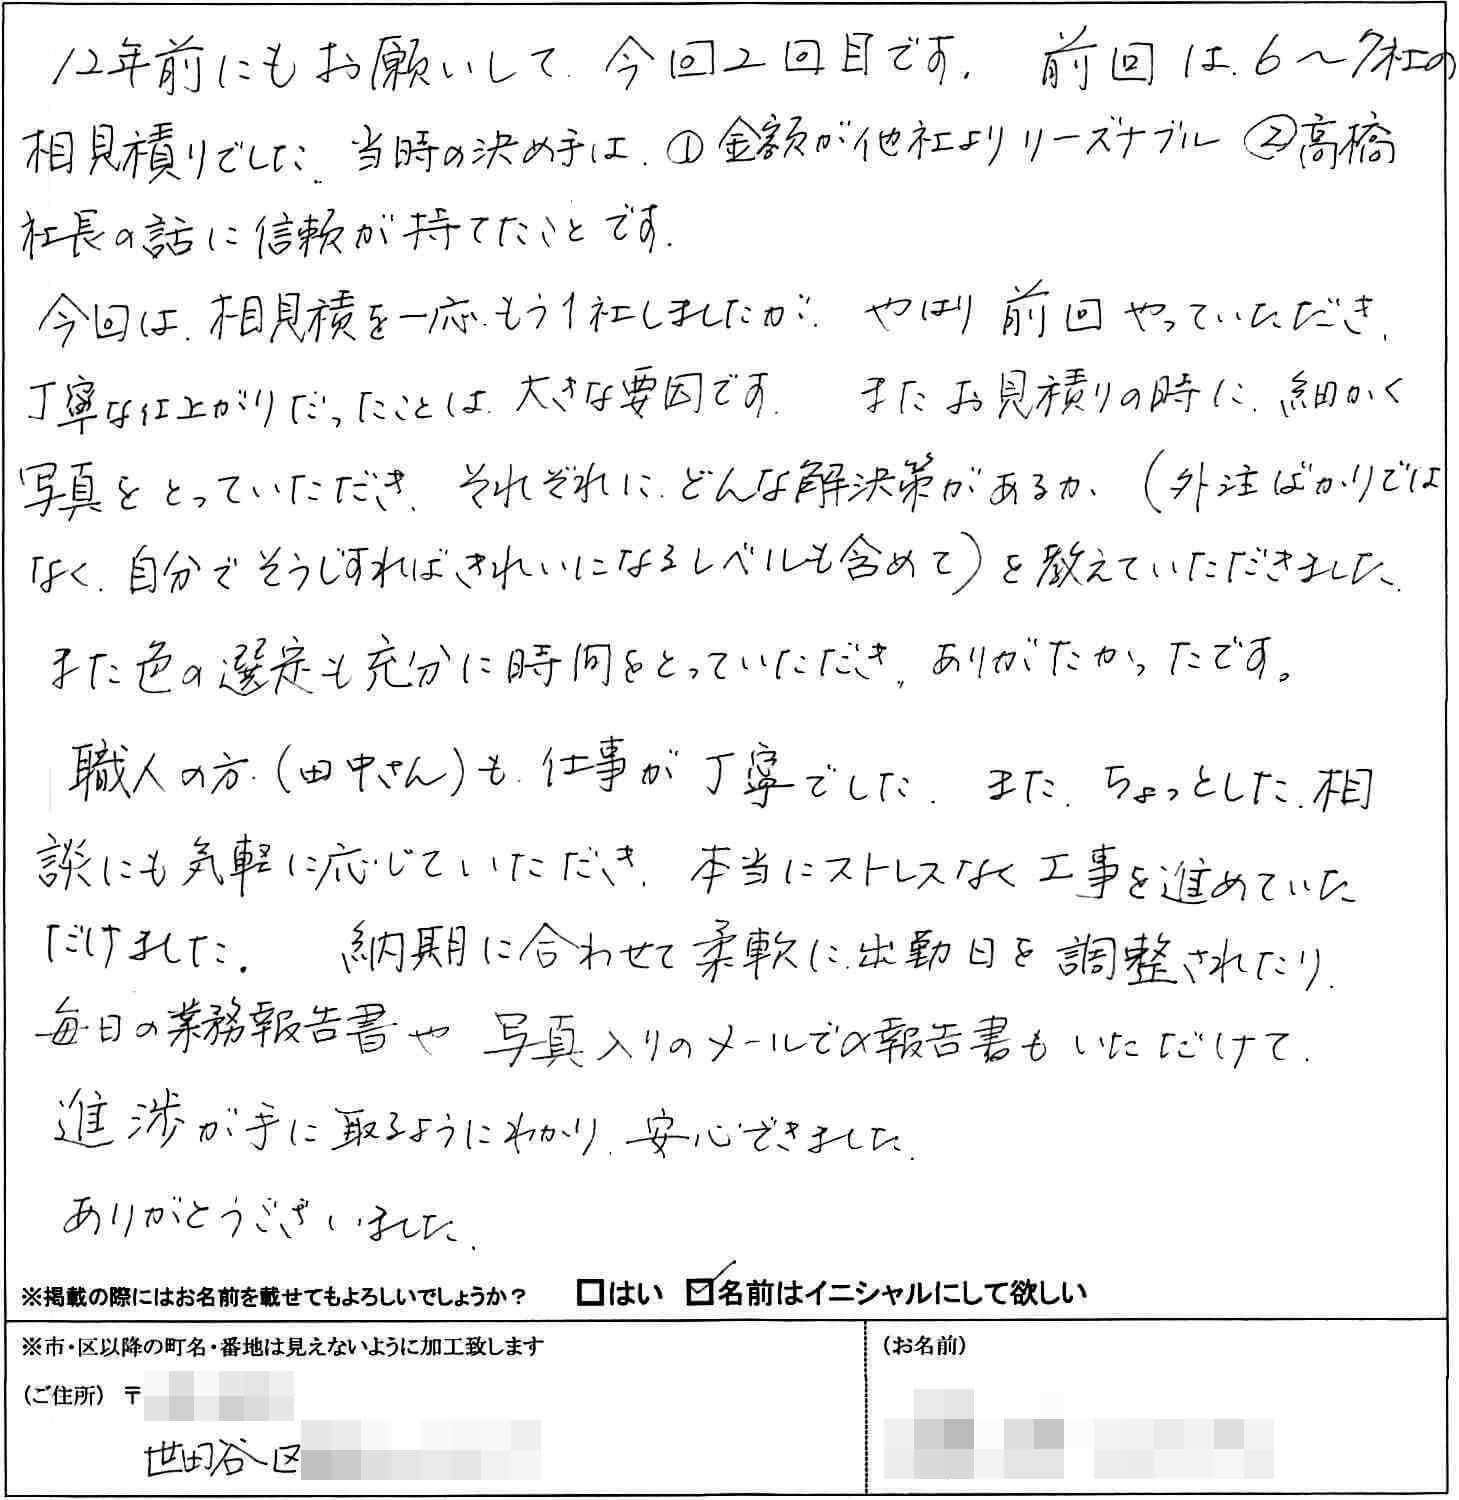 12年前にもお願いして、今回2回目です。 前回は、6〜7社の
相見積りでした。当時の決め手は、①金額が他社よりリーズナブル ②高橋
社長の話に信頼が持てたことです。
今回は、相見積を一応、もう1社しましたが、やはり前回やっていただき、
丁寧な仕上がりだったことは、大きな要因です。 またお見積りの時に、細かく
写真をとっていただき、それぞれに、どんな解決策があるか、(外注ばかりでは
なく、自分でそうじすればきれいになるレベルも含めて)を教えていただきました。
また色の選定も充分に時間をとっていただき、ありがたかったです。
職人の方(田中さん)も、仕事が丁寧でした。また、ちょっとした、相
談にも気軽に応じていただき、本当にストレスなく工事を進めていた
だけました。 納期に合わせて柔軟に、出勤日を調整されたり、
毎日の業務報告書や写真入りのメールでの報告書もいただけて、
進渉が手に取るようにわかり、安心できました。
ありがとうございました。
※掲載の際にはお名前を載せてもよろしいでしょうか? □はい ☑名前はイニシャルにして欲しい
※市・区以降の町名・番地は見えないように加工致します
(お名前)
(ご住所) 〒
世田谷区